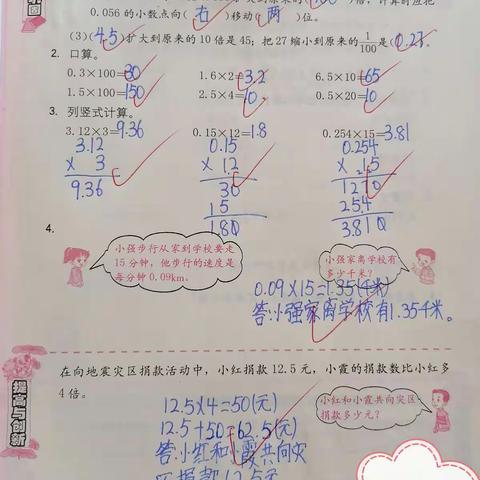 0.056 的小数点向( 右 )移动( 两 )位。
(3)( 4.5 )扩大到原来的10倍是45；把27缩小到原来的1/100是( 0.27 )
2. 口算。
0.3×100=30 1.6×2=3.2 6.5×10=65
1.5×100=150 2.5×4=10 0.5×20=10
3. 列竖式计算。
3.12×3=9.36 0.15×12=1.8 0.254×15=3.81
3.12 0.15 0.254
× 3 × 12 × 15
9.36 30 1270
15 254
180 3810
4.
小强步行从家到学校要走
15分钟，他步行的速度是
每分钟0.09km。
小强家离学校有
多少千米？
0.09×15=1.35(千米)
答:小强家离学校有1.35千米。
在向地震灾区捐款活动中，小红捐款12.5元，小霞的捐款数比小红多
4倍。
提高与创新
小红和小霞共向灾区
捐款多少元？
12.5×4=50(元)
12.5+50=62.5(元)
答:小红和小霞共向灾
区捐款